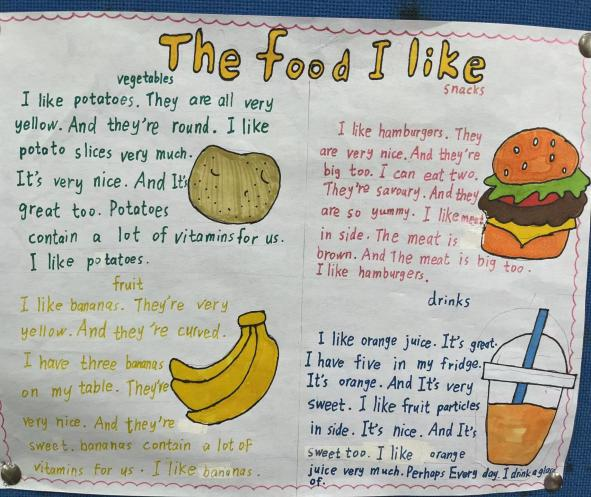 The food I like
vegetables
I like potatoes. They are all very
yellow. And they're round. I like
potato slices very much.
It's very nice. And It's
great too. Potatoes
contain a lot of vitamins for us.
I like potatoes.
snacks
I like hamburgers. They
are very nice. And they're
big too. I can eat two.
They're savoury. And they
are so yummy. I like meet
in side. The meat is
brown. And The meat is big too.
I like hamburgers.
fruit
I like bananas. They're very
yellow. And they're curved.
I have three bananas
on my table. They're
very nice. And they're
sweet. bananas contain a lot of
vitamins for us. I like bananas.
drinks
I like orange juice. It's great.
I have five in my fridge.
It's orange. And It's very
sweet. I like fruit particles
in side. It's nice. And It's
sweet too. I like orange
juice very much. Perhaps Every day. I drink a glass
of.